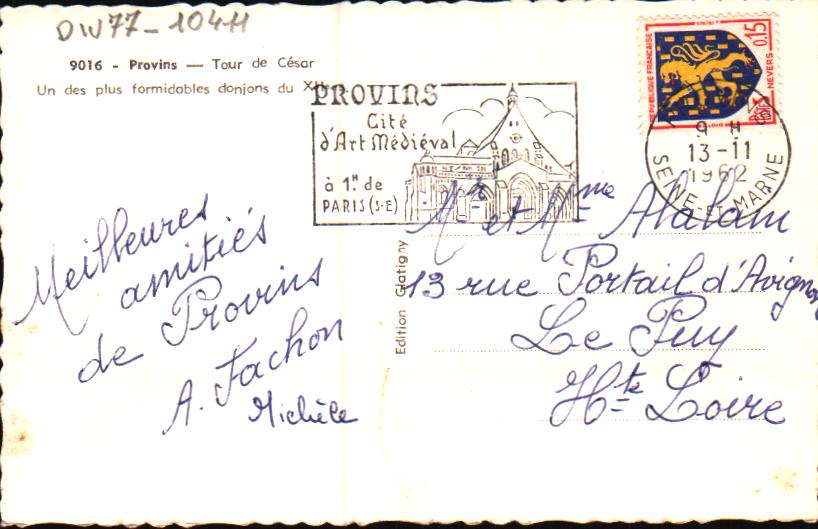 DIV77-104H
9016 - Provins — Tour de César
Un des plus formidables donjons du
PROVINS
Cité
d'Art Médiéval
à 1H de
PARIS (S-E)
RÉPUBLIQUE FRANÇAISE
0,15
NEVERS
9 H
13-11
1962
SEINE-ET-MARNE
Meilleures
amitiés
de Provins
A. Fachon
Michèle
Edition Glatigny
Mr et Mme Alalain
13 rue Portail d'Avignon
Le Puy
Hte Loire